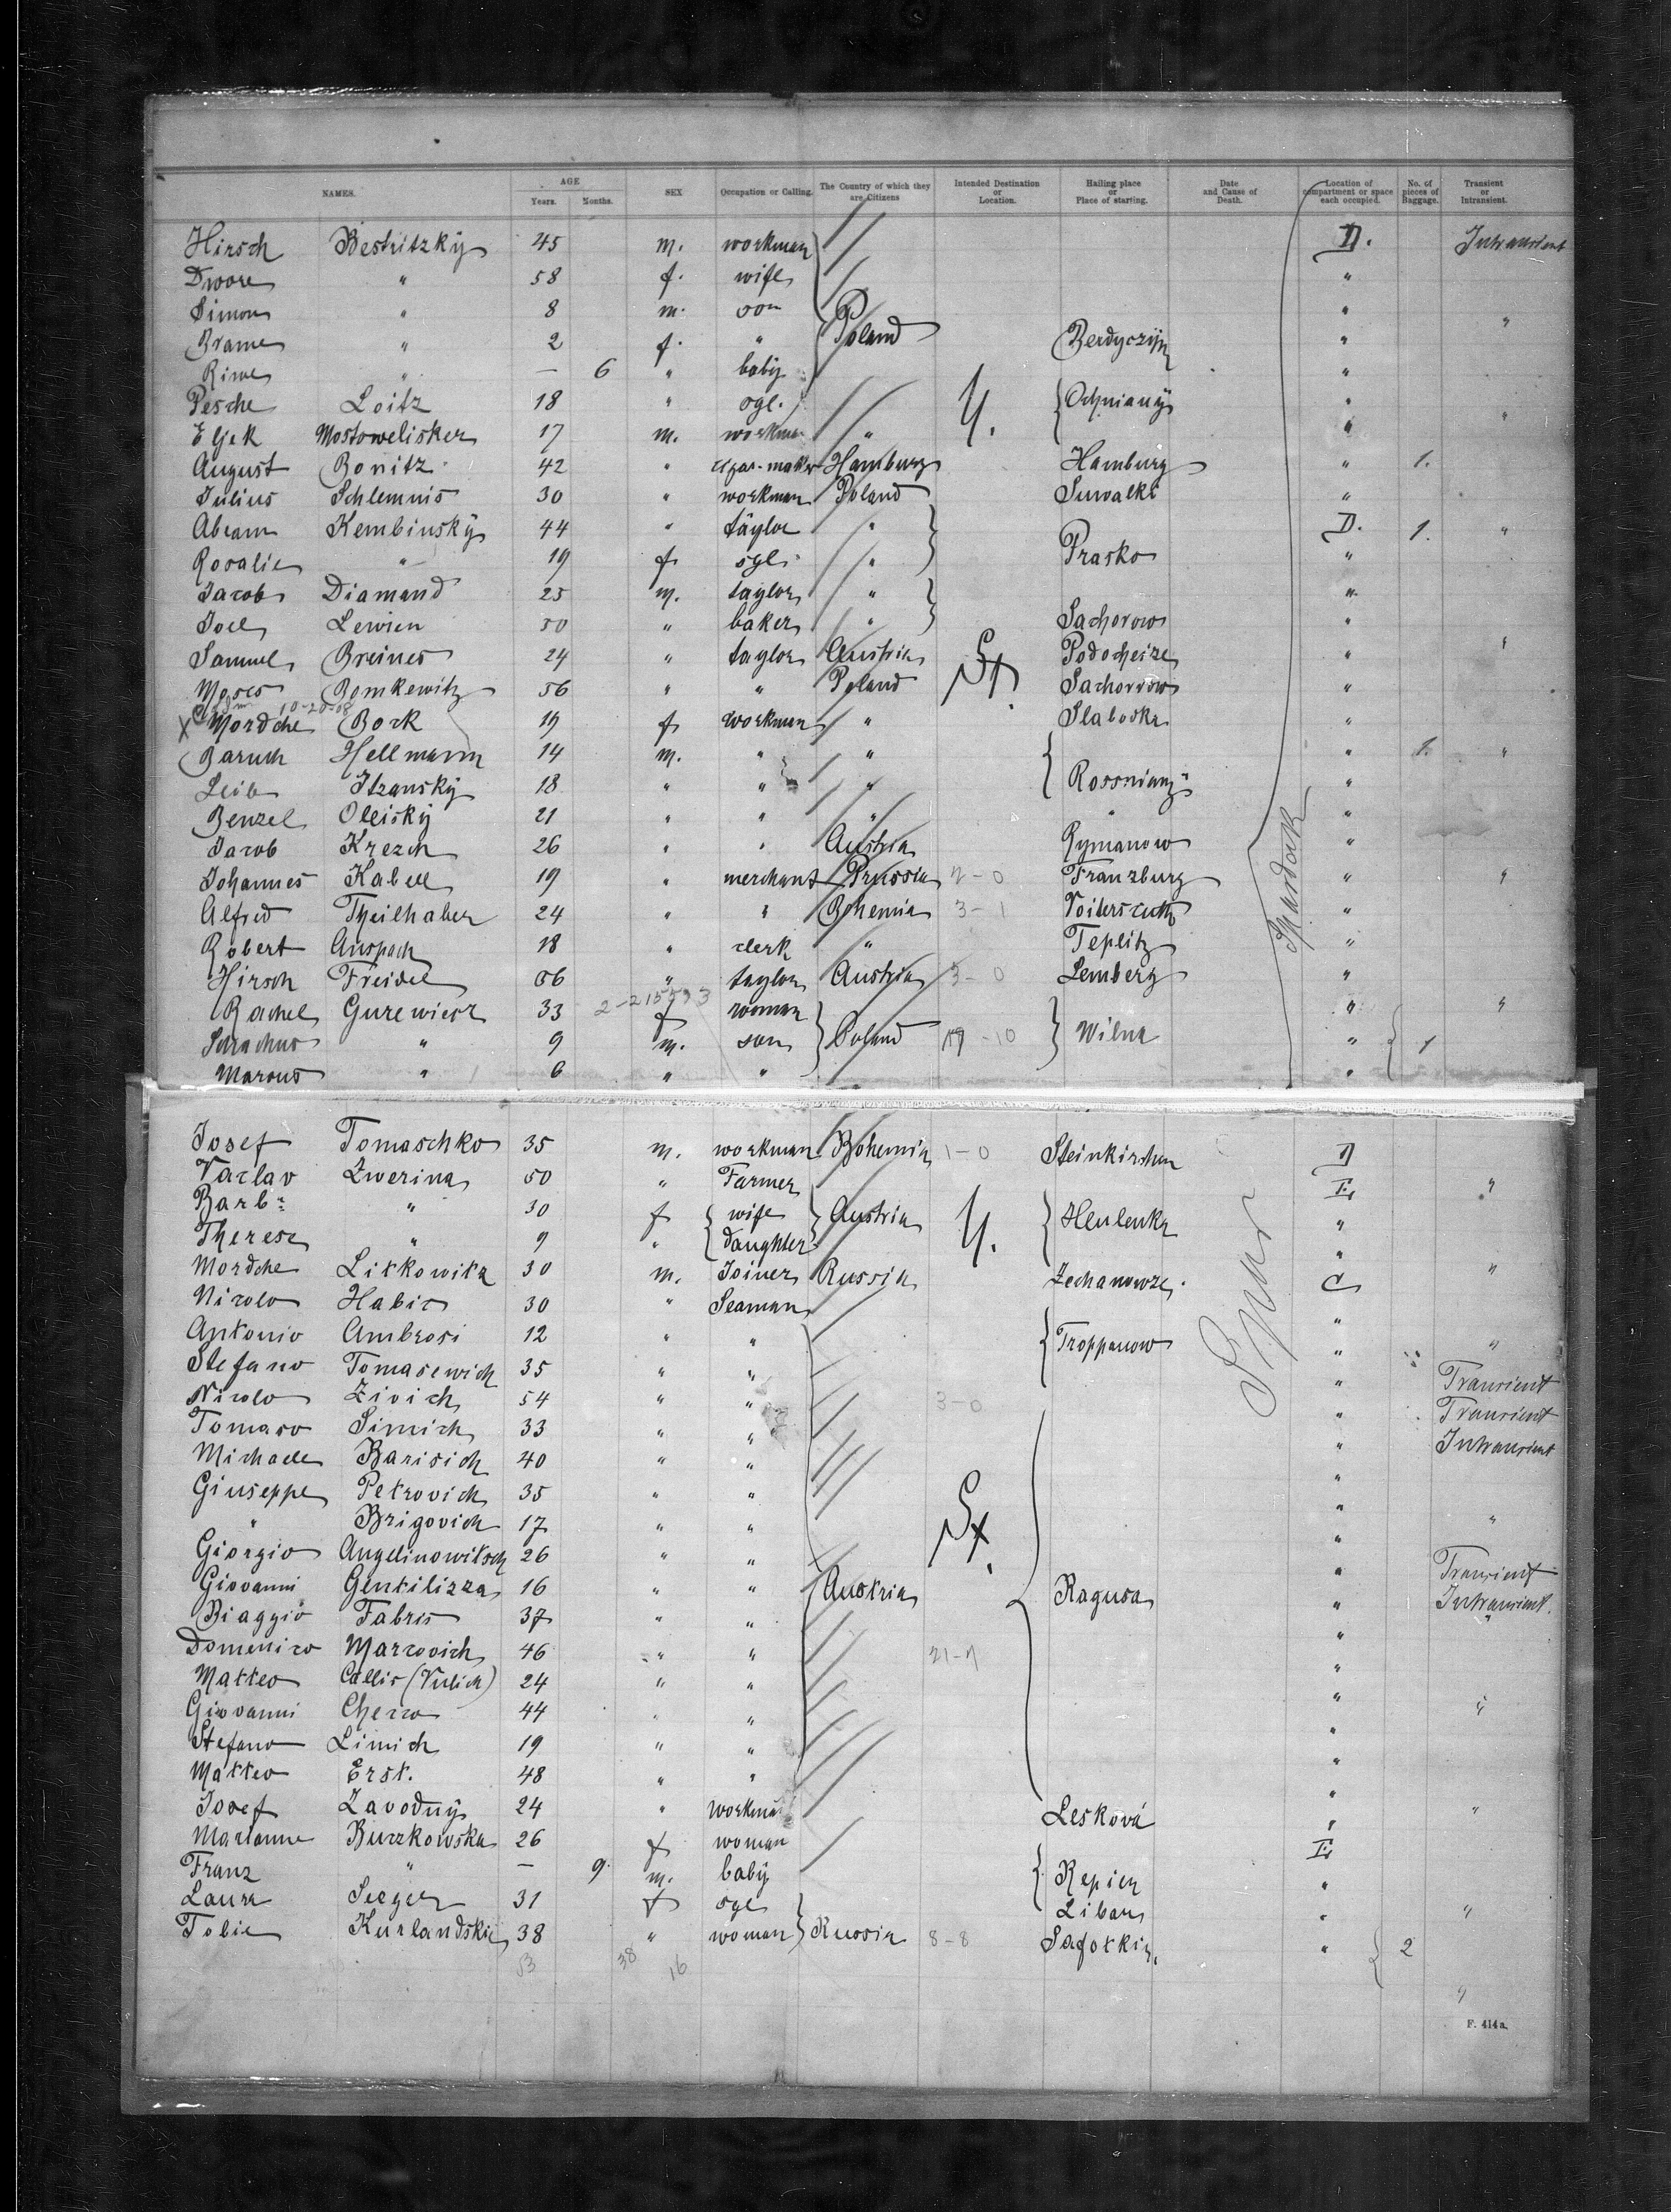 NAMES. AGE Years. Months. SEX Occupation or Calling. The Country of which they are Citizens Intended Destination or Location. Hailing place or Place of starting. Date and Cause of Death. Location of compartment or space each occupied. No. of pieces of Baggage. Transient or Intransient.
Hirsch Bestritzky 45 m. workman D. Intransient
Dwore " 58 f. wife "
Simon " 8 m. son " "
Brame " 2 f. " Poland Berdyczijn "
Riwe " — 6 " baby "
Pesche Loitz 18 " sgl. Y. Ochniany " "
Eljek Mostowelisker 17 m. workman " "
August Bonitz 42 " cigar-maker Hamburg Hamburg " 1.
Julius Schlemnis 30 " workman Poland Suwalki "
Abram Kembinsky 44 " taylor " D. 1. "
Rosalie " 19 f sgl. " Prasko "
Jacob Diamand 25 m. taylor " "
Joel Lewien 50 " baker " Sachorow "
Samuel Breines 24 " taylor Austria St. Podocheize " "
Moses Romkewitz 56 " " Poland Sachorrow "
10-20-08
X Mordche Bock 19 f workman " Slabodka "
Baruch Hellmann 14 m. " " " 1. "
Leib Itzansky 18 " " " Rossniany "
Benzel Oleisky 21 " " " " "
Jacob Krezch 26 " " Austria Rymanow "
Johannes Kabell 19 " merchant Prussia 2-0 Franzburg " "
Alfred Theilhaber 24 " " Bohemia 3-1 Voitersreuth "
Robert Anspach 18 " clerk " Teplitz "
Hirsch Freidel 56 " taylor Austria 3-0 Lemberg "
2-215593
Rachel Gurewicz 33 f woman " "
Schachus " 9 m. son Poland 19-10 Wilna " 1
Marcus " 6 " " "
Spardeck
Josef Tomaschko 35 m. workman Bohemia 1-0 Steinkirchen D
Vaclav Zwerina 50 " Farmer E "
Barb: " 30 f wife Austria Y. Henlenka "
Therese " 9 " daughter "
Mordche Litkowitz 30 m. Joiner Russia Zechanowze. C "
Nicolo Habic 30 " Seaman "
Antonio Ambrosi 12 " " Troppanow " "
Stefano Tomasewich 35 " " " Transient
Nicolo Zivich 54 " " 3-0 " Transient
Tomaso Simich 33 " " " Intransient
Michaele Barisich 40 " " "
Giuseppe Petrovich 35 " " St. " "
" Brigovich 17 " " "
Giorgio Angelinowitsch 26 " " " Transient
Giovanni Gentilizza 16 " " Austria Ragusa " Intransient.
Biaggio Fabris 37 " " " "
Domenico Marcovich 46 " " 21-7 "
Matteo Callis (Vulich) 24 " " "
Giovanni Cherco 44 " " " "
Stefano Limich 19 " " "
Matteo Erst. 48 " " "
Josef Zavodny 24 " workman Lesková " "
Marianne Burzkowska 26 f woman E
Franz " — 9 m. baby Repien "
Laura Seeger 31 f sgl Libau " "
Tobie Kurlandskie 38 " woman Russia 8-8 " 2
53 38 16
"
F. 414a.